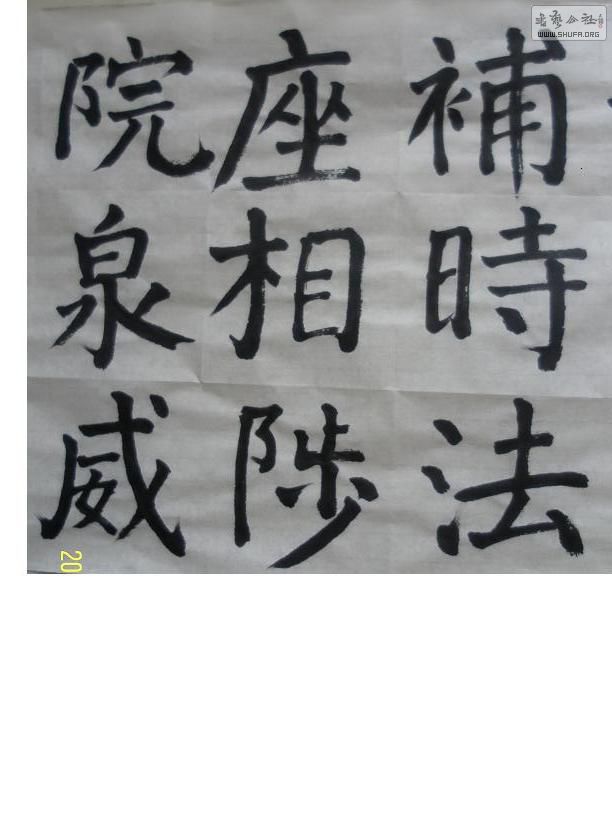 補時法
座相陟
院泉威
書藝公社
WWW.SHUFA.ORG
20